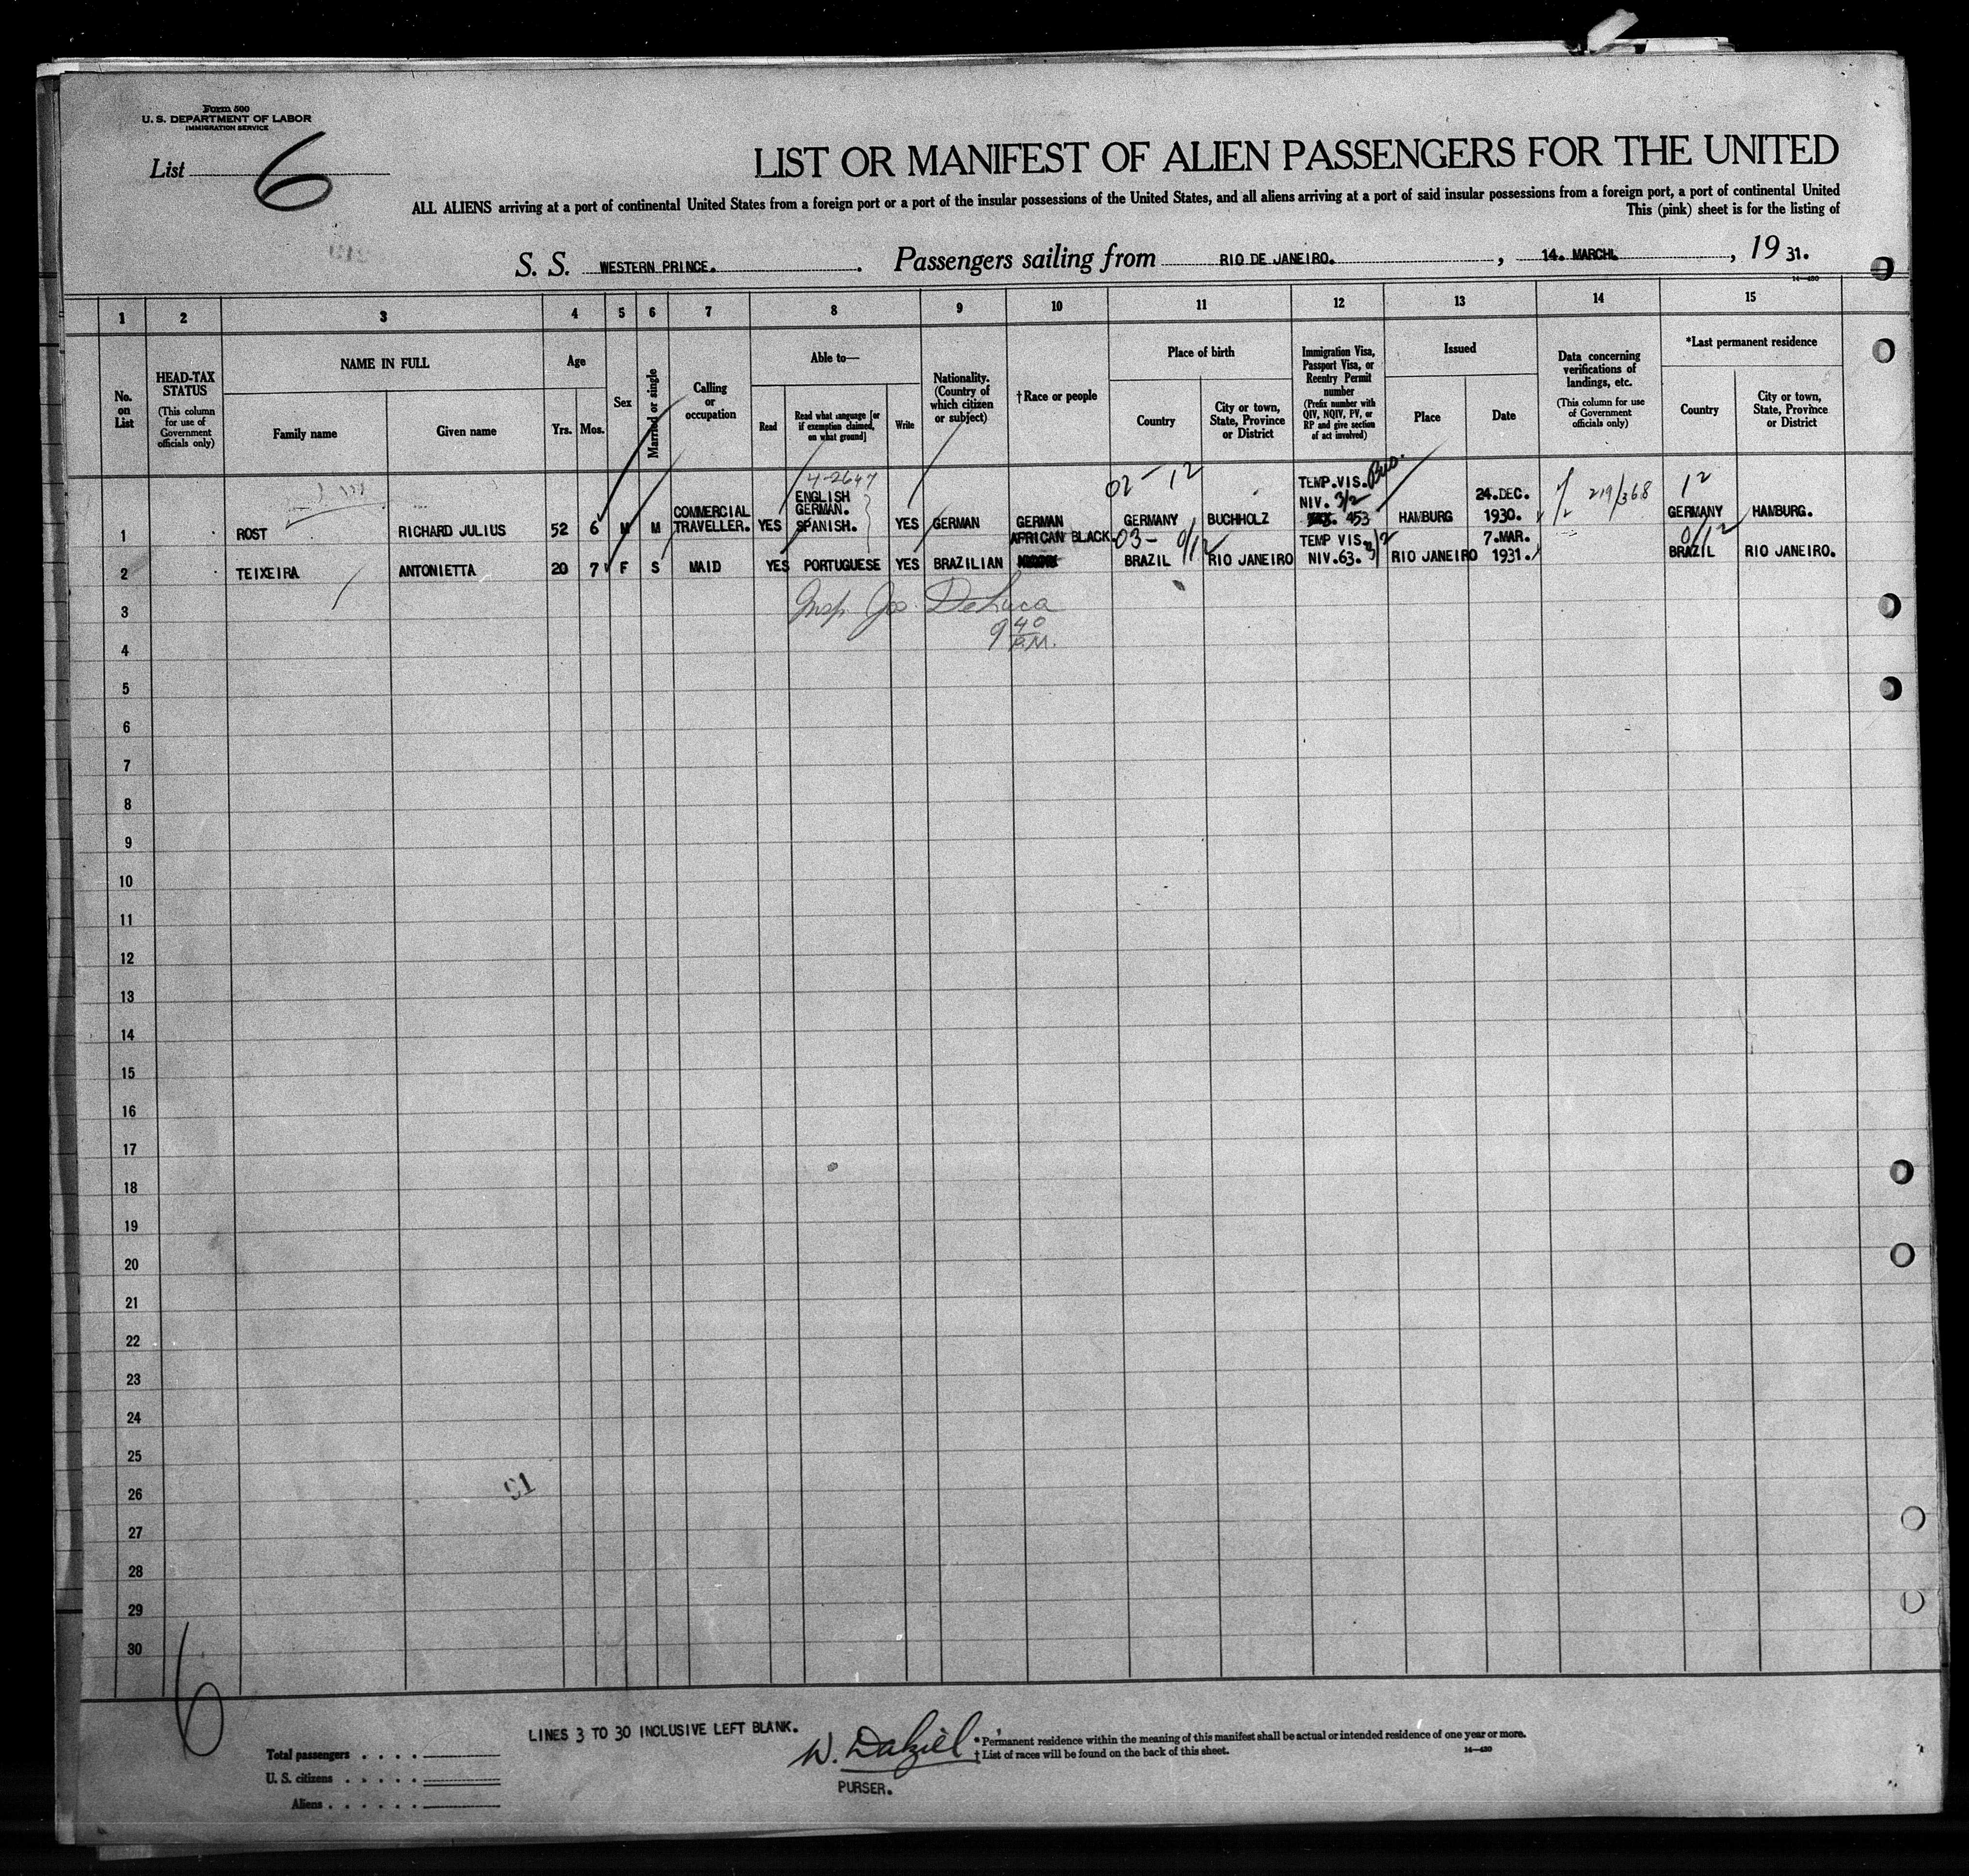 Form 500
U. S. DEPARTMENT OF LABOR
IMMIGRATION SERVICE
List 6
LIST OR MANIFEST OF ALIEN PASSENGERS FOR THE UNITED
ALL ALIENS arriving at a port of continental United States from a foreign port or a port of the insular possessions of the United States, and all aliens arriving at a port of said insular possessions from a foreign port, a port of continental United
This (pink) sheet is for the listing of
S. S. WESTERN PRINCE. Passengers sailing from RIO DE JANEIRO. , 14. MARCH. , 19 31.
14—430
1 2 3 4 5 6 7 8 9 10 11 12 13 14 15
No. on List
HEAD-TAX STATUS
(This column for use of Government officials only)
NAME IN FULL
Family name
Given name
Age
Yrs. Mos.
Sex
Married or single
Calling or occupation
Able to—
Read
Read what language [or if exemption claimed, on what ground]
Write
Nationality. (Country of which citizen or subject)
†Race or people
Place of birth
Country
City or town, State, Province or District
Immigration Visa, Passport Visa, or Reentry Permit number
(Prefix number with QIV, NQIV, PV, or RP and give section of act involved)
Issued
Place
Date
Data concerning verifications of landings, etc.
(This column for use of Government officials only)
*Last permanent residence
Country
City or town, State, Province or District
4-2647
02 - 12
Bus.
219/368
12
1 ROST RICHARD JULIUS 52 6 M M COMMERCIAL TRAVELLER. YES ENGLISH GERMAN. SPANISH. YES GERMAN GERMAN GERMANY BUCHHOLZ TEMP.VIS. NIV. 3/2 453 HAMBURG 24.DEC. 1930. GERMANY HAMBURG.
03- 0/12
0/12
2 TEIXEIRA ANTONIETTA 20 7 F S MAID YES PORTUGUESE YES BRAZILIAN AFRICAN BLACK BRAZIL RIO JANEIRO TEMP VIS. NIV.63. 3/2 RIO JANEIRO 7.MAR. 1931. BRAZIL RIO JANEIRO.
Insp. Jos. DeLuca
9 40 P.M.
3
4
5
6
7
8
9
10
11
12
13
14
15
16
17
18
19
20
21
22
23
24
25
26
27
28
29
30
6
LINES 3 TO 30 INCLUSIVE LEFT BLANK.
W. Dalziel
PURSER.
Total passengers . . . .
U. S. citizens . . . . .
Aliens . . . . . .
* Permanent residence within the meaning of this manifest shall be actual or intended residence of one year or more.
† List of races will be found on the back of this sheet.
14—430